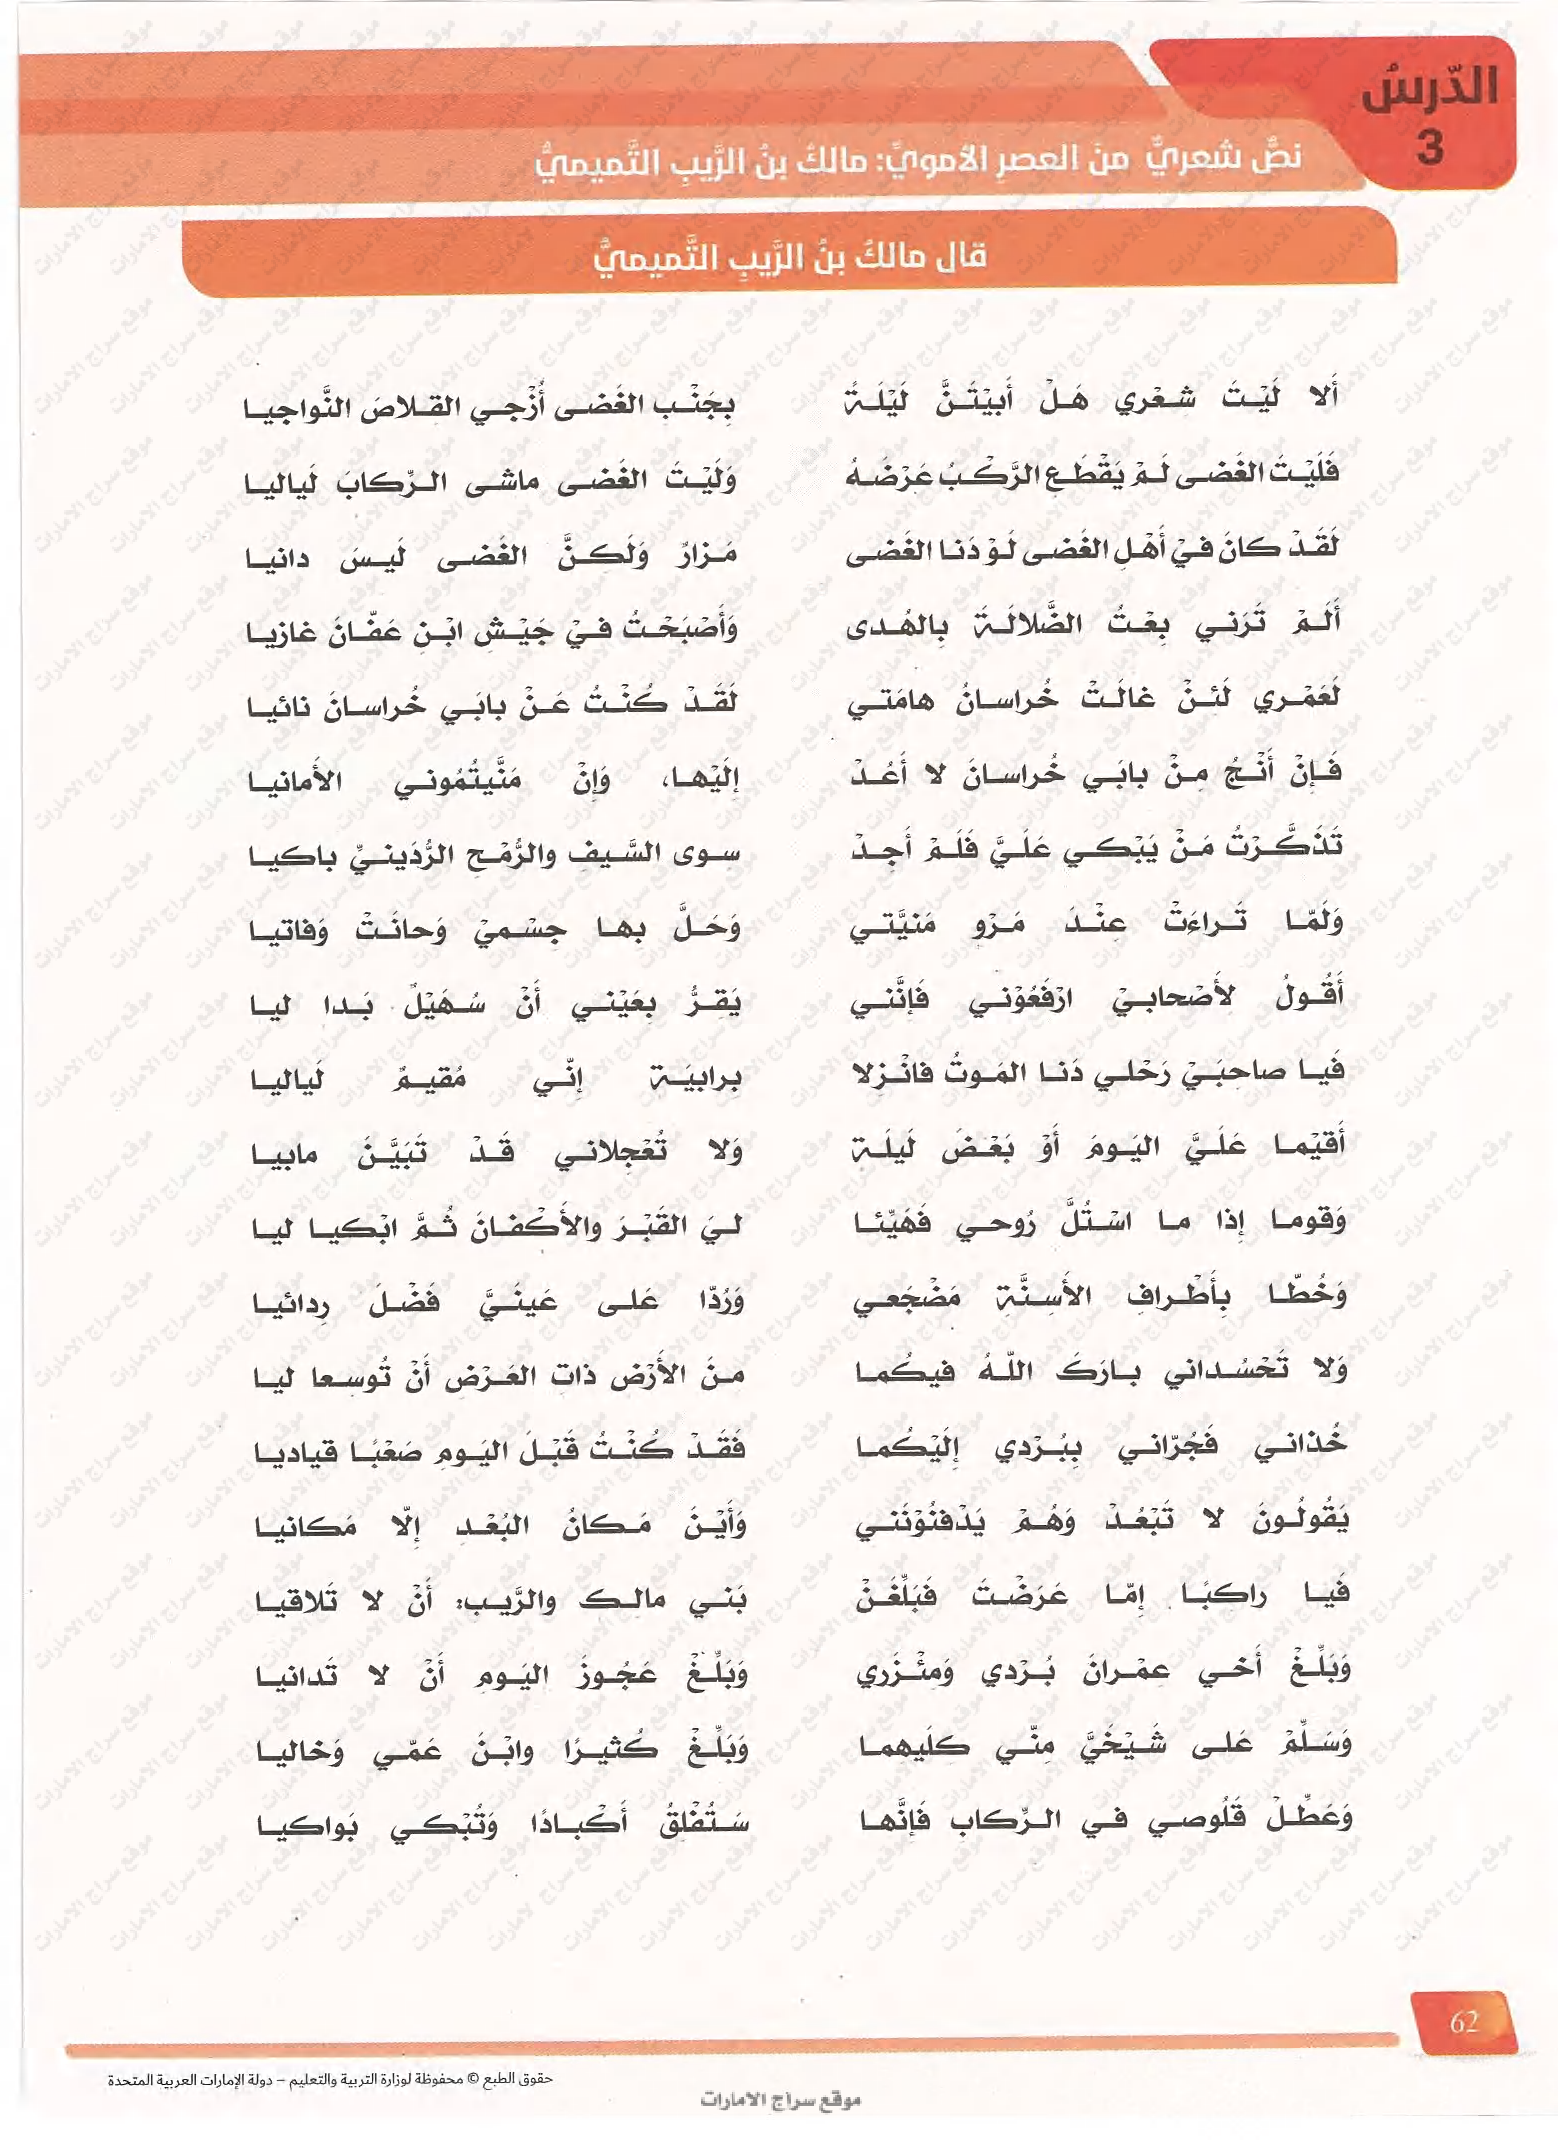 الدّرسُ
3
نصٌّ شعريٌّ منَ العصرِ الأمويِّ: مالكُ بنُ الرَّيبِ التَّميميُّ
قال مالكُ بنُ الرَّيبِ التَّميميُّ
أَلا لَيْتَ شعْري هَلْ أَبيْتَنَّ لَيْلَةً بِجَنْبِ الغَضى أُزْجي القِلاصَ النَّواجيا
فَلَيْتَ الغَضى لَمْ يَقْطَعِ الرَّكْبُ عَرْضَهُ وَلَيْتَ الغَضى ماشى الرِّكابَ لَياليا
لَقَدْ كانَ فيْ أَهْلِ الغَضى لَوْ دَنا الغَضى مَزارٌ وَلَكنَّ الغَضى لَيسَ دانيا
أَلَمْ تَرَني بِعْتُ الضَّلالَةَ بِالهُدى وَأَصْبَحْتُ فيْ جَيْشِ ابْنِ عَفّانَ غازيا
لَعَمْري لَئنْ غالَتْ خُراسانُ هامَتي لَقَدْ كُنْتُ عَنْ بابَي خُراسانَ نائيا
فَإنْ أَنْجُ منْ بابَي خُراسانَ لا أَعُدْ إلَيْها، وَإنْ مَنَّيتُمُوني الأَمانيا
تَذَكَّرْتُ مَنْ يَبْكي عَلَيَّ فَلَمْ أَجِدْ سِوى السَّيفِ والرُّمْحِ الرُّدَينيِّ باكيا
وَلَمّا تَراءَتْ عِنْدَ مَرْو مَنيَّتي وَحَلَّ بها جسْميْ وَحانَتْ وَفاتيا
أَقُولُ لأَصْحابيْ ارْفَعُوْني فَإنَّني يَقرُّ بعَيْني أَنْ سُهَيْلٌ بَدا ليا
فَيا صاحبَيْ رَحْلي دَنا المَوتُ فانْزلا برابيَة إنّي مُقيمٌ لَياليا
أَقيْما عَلَيَّ اليَومَ أَوْ بَعْضَ لَيلَة وَلا تُعْجلاني قَدْ تَبَيَّنَ مابيا
وَقوما إذا ما اسْتُلَّ رُوحي فَهَيِّئا ليَ القَبْرَ والأَكْفانَ ثُمَّ ابْكيا ليا
وَخُطّا بِأَطْرافِ الأَسِنَّةِ مَضْجَعي وَرُدّا عَلى عَينَيَّ فَضْلَ رِدائيا
وَلا تَحْسُداني بارَكَ اللهُ فيكُما منَ الأَرْض ذات العَرْض أَنْ تُوسعا ليا
خُذاني فَجُرّاني ببُرْدي إلَيْكُما فَقَدْ كُنْتُ قَبْلَ اليَومِ صَعْبًا قياديا
يَقُولُونَ لا تَبْعُدْ وَهُمْ يَدْفنُوْنَني وَأَيْنَ مَكانُ البُعْدِ إلّا مَكانيا
فَيا راكبًا إمّا عَرَضْتَ فَبَلِّغَنْ بَني مالك والرَّيب: أَنْ لا تَلاقيا
وَبَلِّغْ أَخي عمْرانَ بُرْدي وَمئْزَري وَبَلِّغْ عَجُوزَ اليَومِ أَنْ لا تَدانيا
وَسَلِّمْ عَلى شَيْخَيَّ مِنّي كلَيهما وَبَلِّغْ كُثيرًا وابْنَ عَمّي وَخاليا
وَعَطِّلْ قَلُوصي في الرِّكاب فَإنَّها سَتُفْلِقُ أَكْبادًا وَتُبْكي بَواكيا
62
حقوق الطبع © محفوظة لوزارة التربية والتعليم – دولة الإمارات العربية المتحدة
موقع سراج الامارات